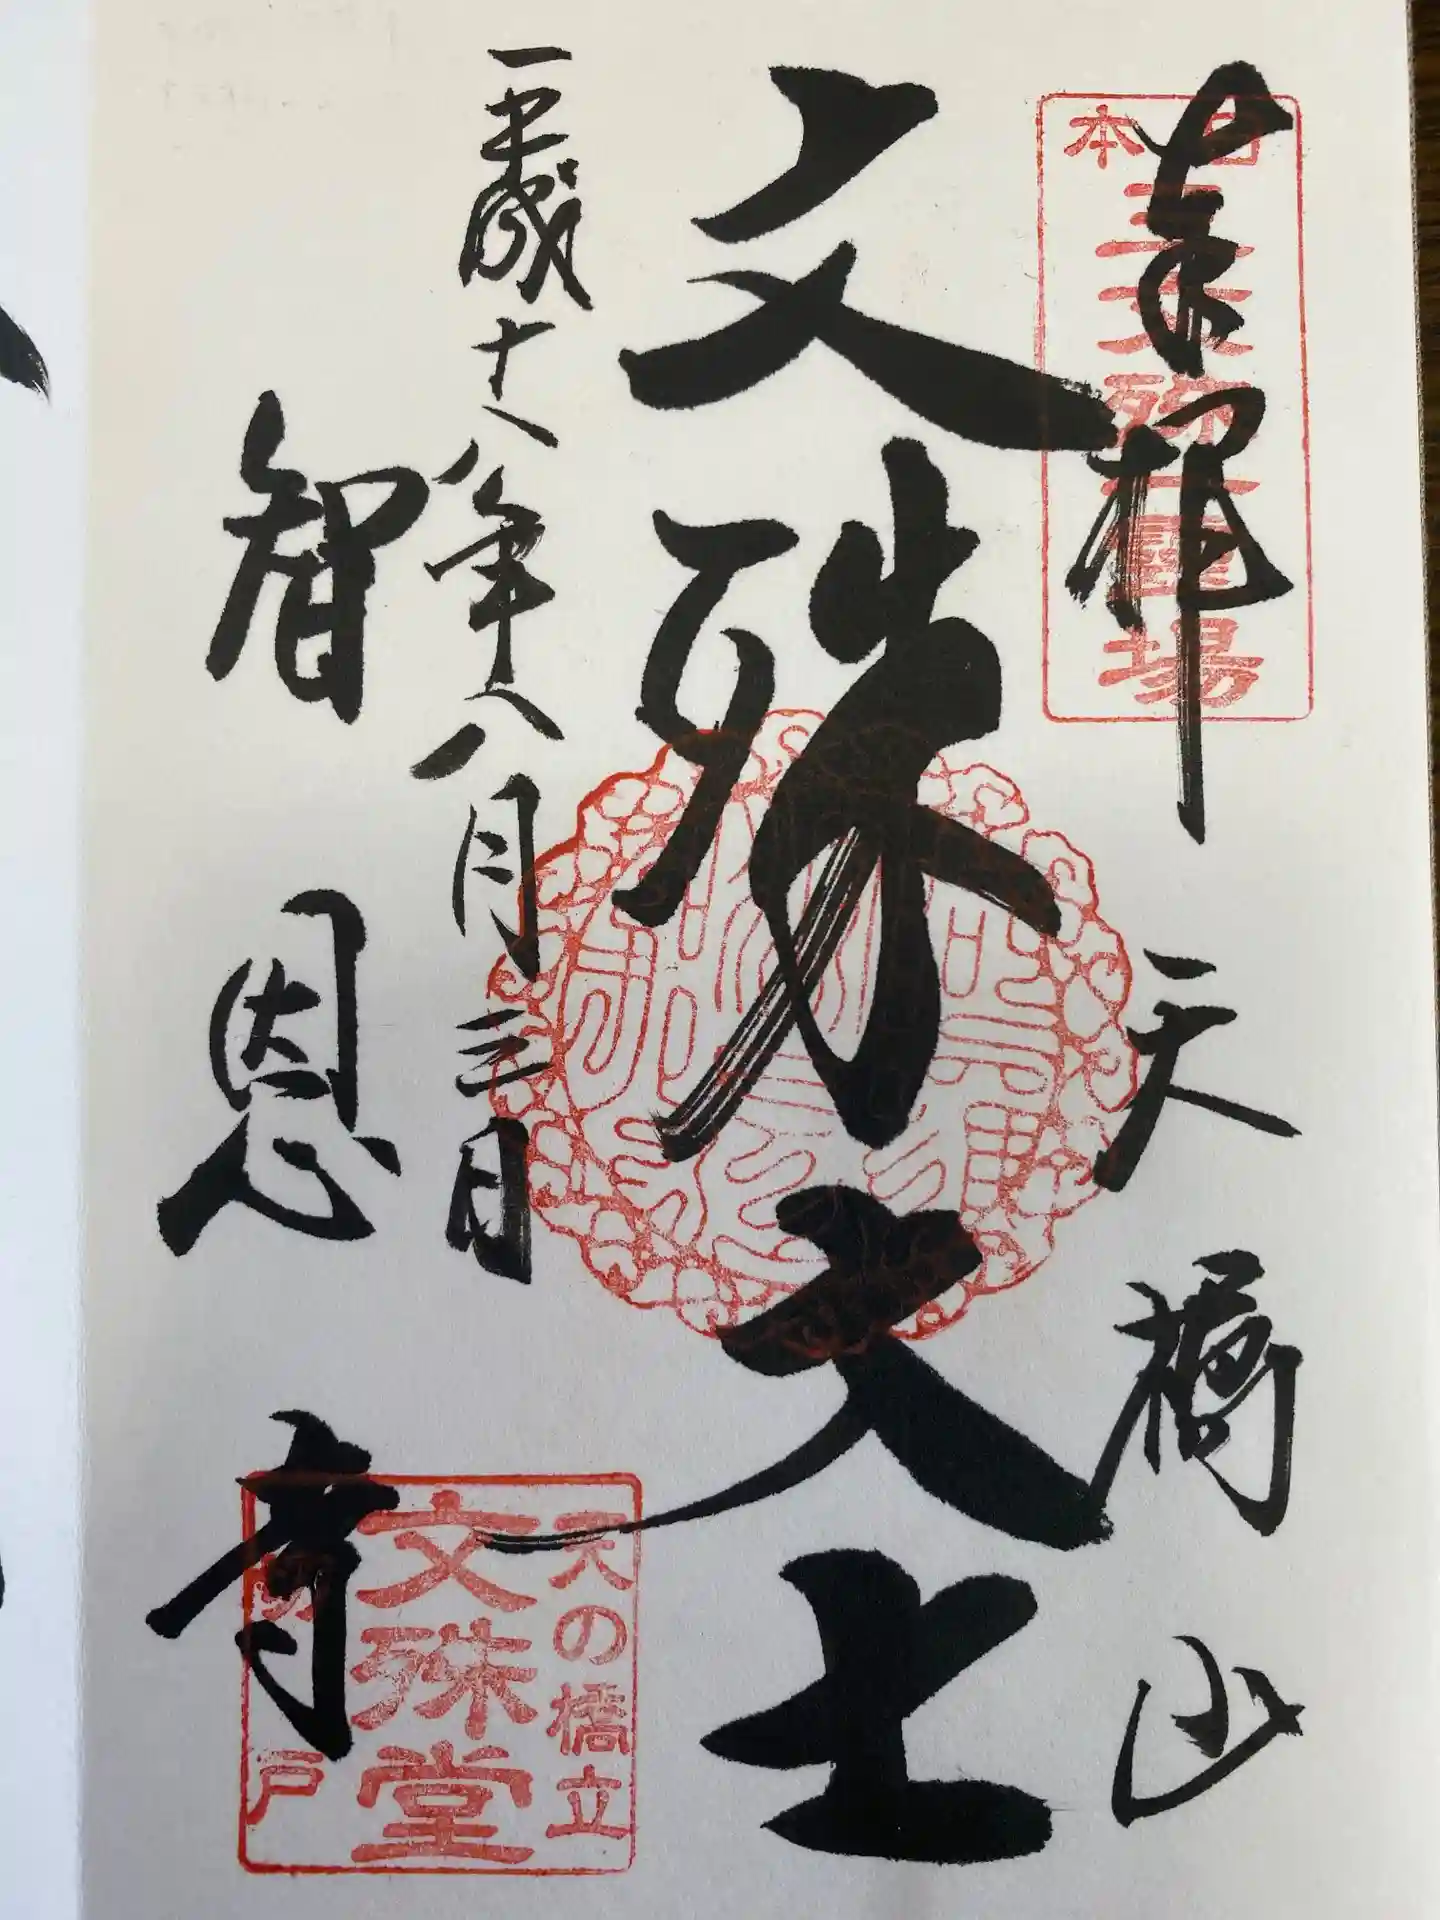 奉拝
日本
三文殊第一霊場
天橋山
文殊大士
平成十八年八月三日
智恩寺
天の橋立
文殊堂
切戸